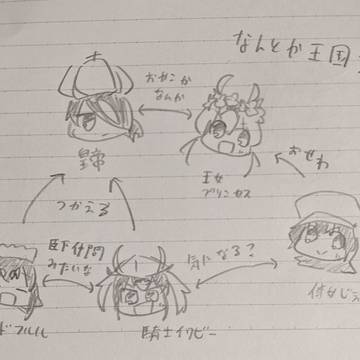 なんとか王国
おやこか
なんか
皇帝
王女
プリンセス
おせわ
つかえる
臣下仲間
みたいな
気になる?
ドフルル
騎士イワビー